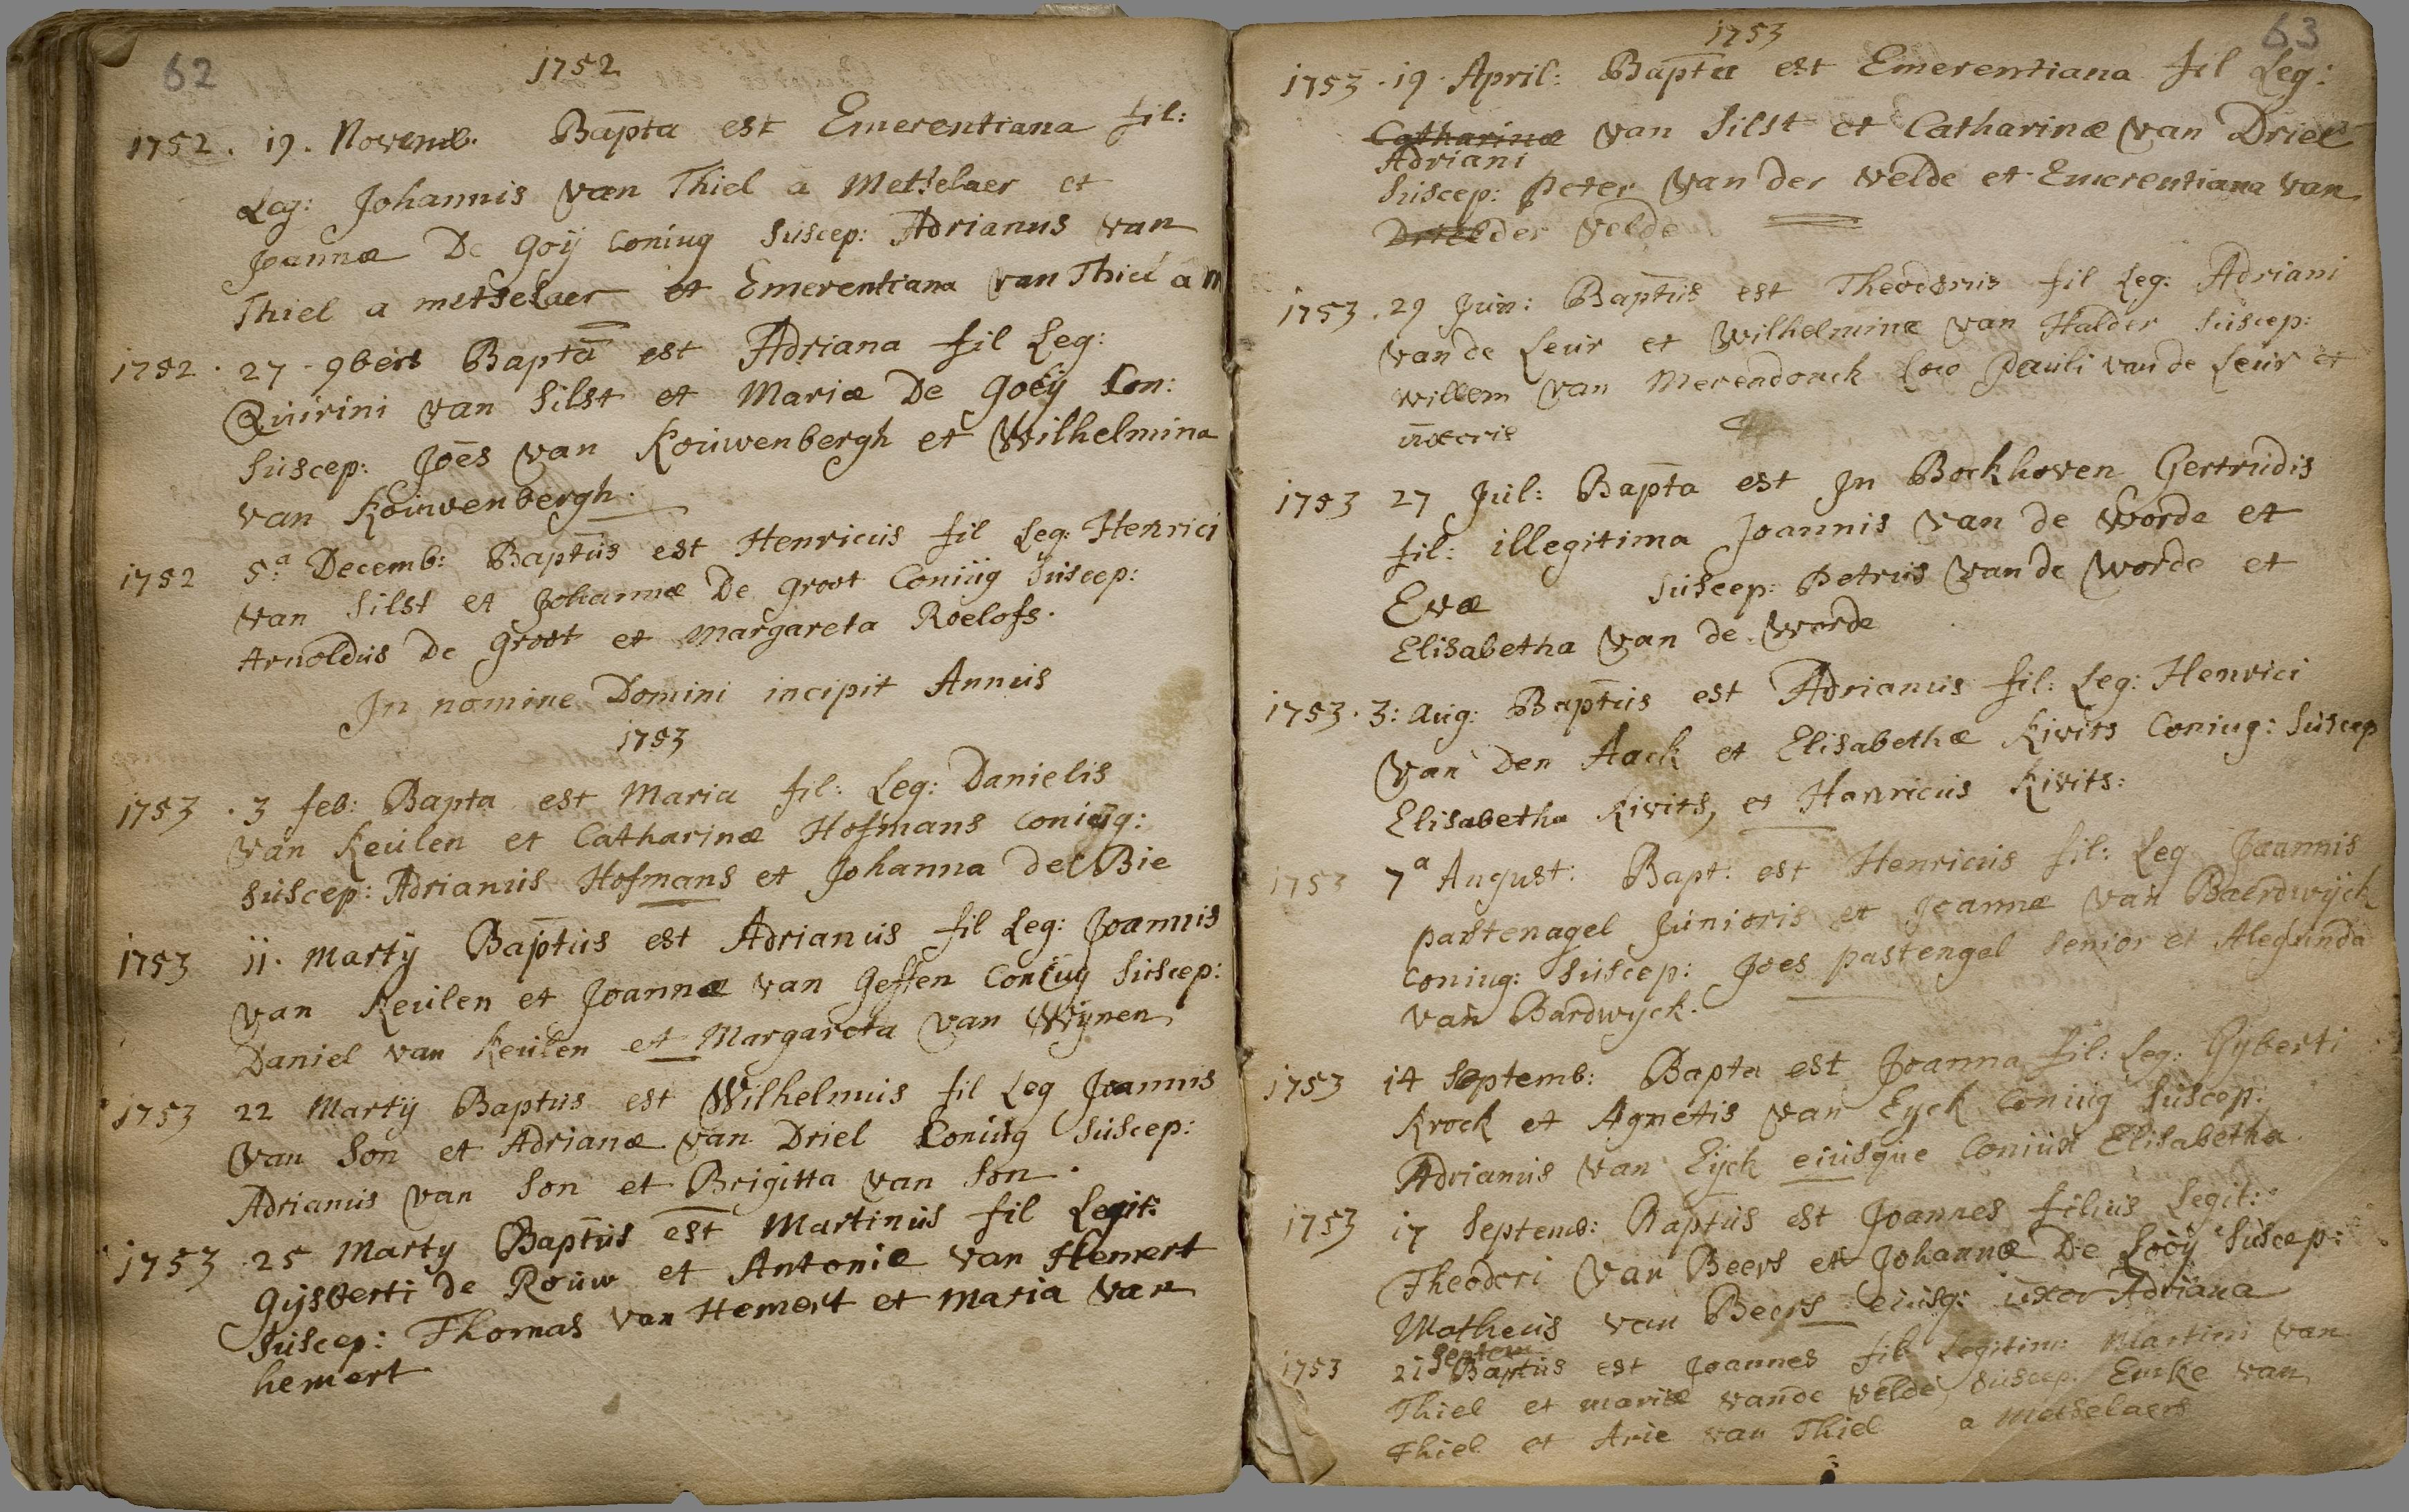 62
1752
1752. 19. Novemb. Bapta est Emerentiana fil:
Leg: Johannis van Thiel a Metselaer et
Joannæ De Goij Coniug Suscep: Adrianus van
Thiel a metselaer et Emerentiana van Thiel a M
1752. 27. 9bers Bapta est Adriana fil Leg:
Quirini van Silst et Mariæ De Goeij Con:
Suscep: Joes van Kouwenbergh et Wilhelmina
van Kouwenbergh.
1752 5.a Decemb: Baptus est Henricus fil Leg: Henrici
van Silst et Johannæ De Groot Coniug Suscep:
Arnoldus De Groot et Margareta Roelofs.
In nomine Domini incipit Annus
1753
1753. 3 feb: Bapta est Maria fil: Leg: Danielis
van Keulen et Catharinæ Hofmans coniug:
Suscep: Adrianus Hofmans et Johanna de Bie
1753 11. Martij Baptus est Adrianus fil Leg: Joannis
van Keulen et Joannæ van Geffen Coniug Suscep:
Daniel van Keulen et Margareta van Wijnen
1753 22 Martij Baptus est Wilhelmus fil Leg Joannis
van Son et Adrianæ van Driel Coniug Suscep:
Adrianus van Son et Brigitta van Son.
1753. 25 Martij Baptus est Martinus fil Legit:
Gijsberti de Rouw et Antoniæ van Hemert
Suscep: Thomas van Hemert et Maria van
hemert
63
1753
1753. 19. April: Bapta est Emerentiana fil Leg:
Catharinæ van Silst et Catharinæ van Driel
Adriani
Suscep: Peter van der Velde et Emerentiana van
Driel der Velde
1753. 29 Jun: Baptus est Theodorus fil Leg: Adriani
van de Leur et Wilhelminæ van Halder Suscep:
Willem van Merendonck loco Pauli van de Leur et
uxoris
1753 27 Jul: Bapta est In Bockhoven Gertrudis
fil: illegitima Joannis van de Worde et
Evæ Suscep: Petrus van de Worde et
Elisabetha van de Worde
1753. 3: Aug: Baptus est Adrianus fil: Leg: Henrici
van Den Aack et Elisabethæ Kivits Coniug: Suscep
Elisabetha Kivits, et Hanricus Kivits:
1753 7a August: Bapt: est Henricus fil: Leg Joannis
pastenagel Junioris et Joannæ van Baerdwijck
Coniug: Suscep: Joes pastengel Senior et Alegunda
van Bardwijck.
1753 14 Septemb: Bapta est Joanna fil: Leg: Gyberti
Krock et Agnetis van Eyck Coniug Suscep:
Adrianus van Eijck eiusque Coniux Elisabetha
1753 17 Septemb: Baptus est Joannes filius Legit:
Theodori van Beers et Johannæ De Looij Suscep:
Matheus van Beers eiusq: uxor Adriana
Septem
1753 21 Baptus est Joannes fil Legitim: Martini van
Thiel et mariæ vande Velde, Suscep: Emke van
Thiel et Arie van Thiel a Metselaers